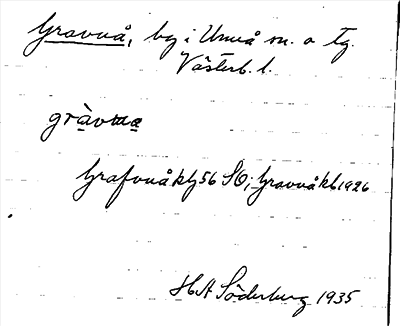 Gravnå, by i Umeå sn. o tg.
Västerb. l.
gràvnɑ
Grafvnå kbg 56 SO; Gravnå kb 1926
H A Söderberg 1935